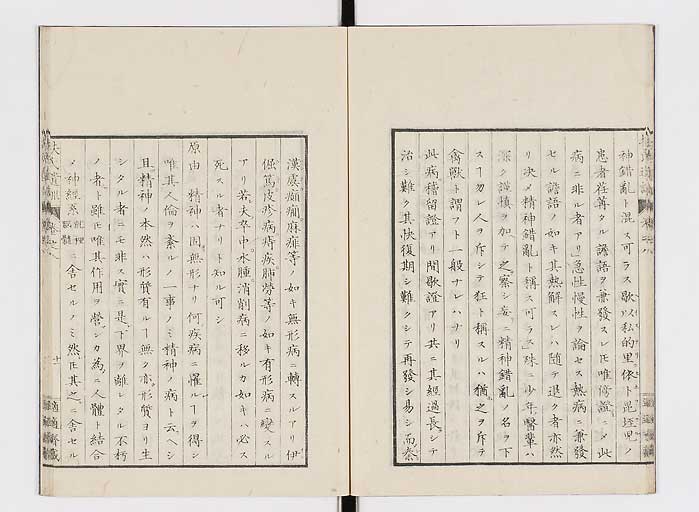 神錯亂ト混ス可ラス歇私的里依卜昆垤児ノ
患者荏苒タル譫語ヲ兼發スレ𪜈唯脩證ニ乄此
病ニ非ル者アリ急性慢性ヲ論セス熱病ニ兼發
セル譫語ノ如キ其熱解スレハ随テ退ク者亦然
リ決メ精神錯亂ト稱ス可ラス殊ニ少年醫輩ハ
深ク謹慎ヲ加テ之ヲ察シ妄ニ精神錯亂ノ名ヲ下
スヿ勿レ人ヲ斥シテ狂ト稱スルハ猶之ヲ斥テ
禽獣ト謂フト一般ナレハナリ
此病稽留證アリ間歇證アリ共ニ其經過長クシテ
治シ難ク其快復期シ難クシテ再發シ易シ而メ
漢虞癲癇麻痺等ノ如キ無形病ニ轉スルアリ伊
倔篤皮疹病痔疾肺勞等ノ如キ有形病ニ變スル
アリ若夫卒中水腫消削病ニ移ルカ如キハ必ス
死スル者ナリト知ル可シ
原由 精神ハ固無形ナリ何疾病ニ罹ルヿヲ得ン
唯其人倫ヲ紊ルノ一事ノミ精神ノ病ト云ヘシ
且精神ノ本然ハ形質有ルヿ無ク亦形質ヨリ生
シタル者ニモ非ス實ニ是下界ヲ離レタル不朽
ノ者ト雖𪜈唯其作用ヲ營シカ為ニ人體ト結合
メ神經系ニ舎セルノミ然𪜈其之ニ舎セル
扶氏經驗
適適齋藏